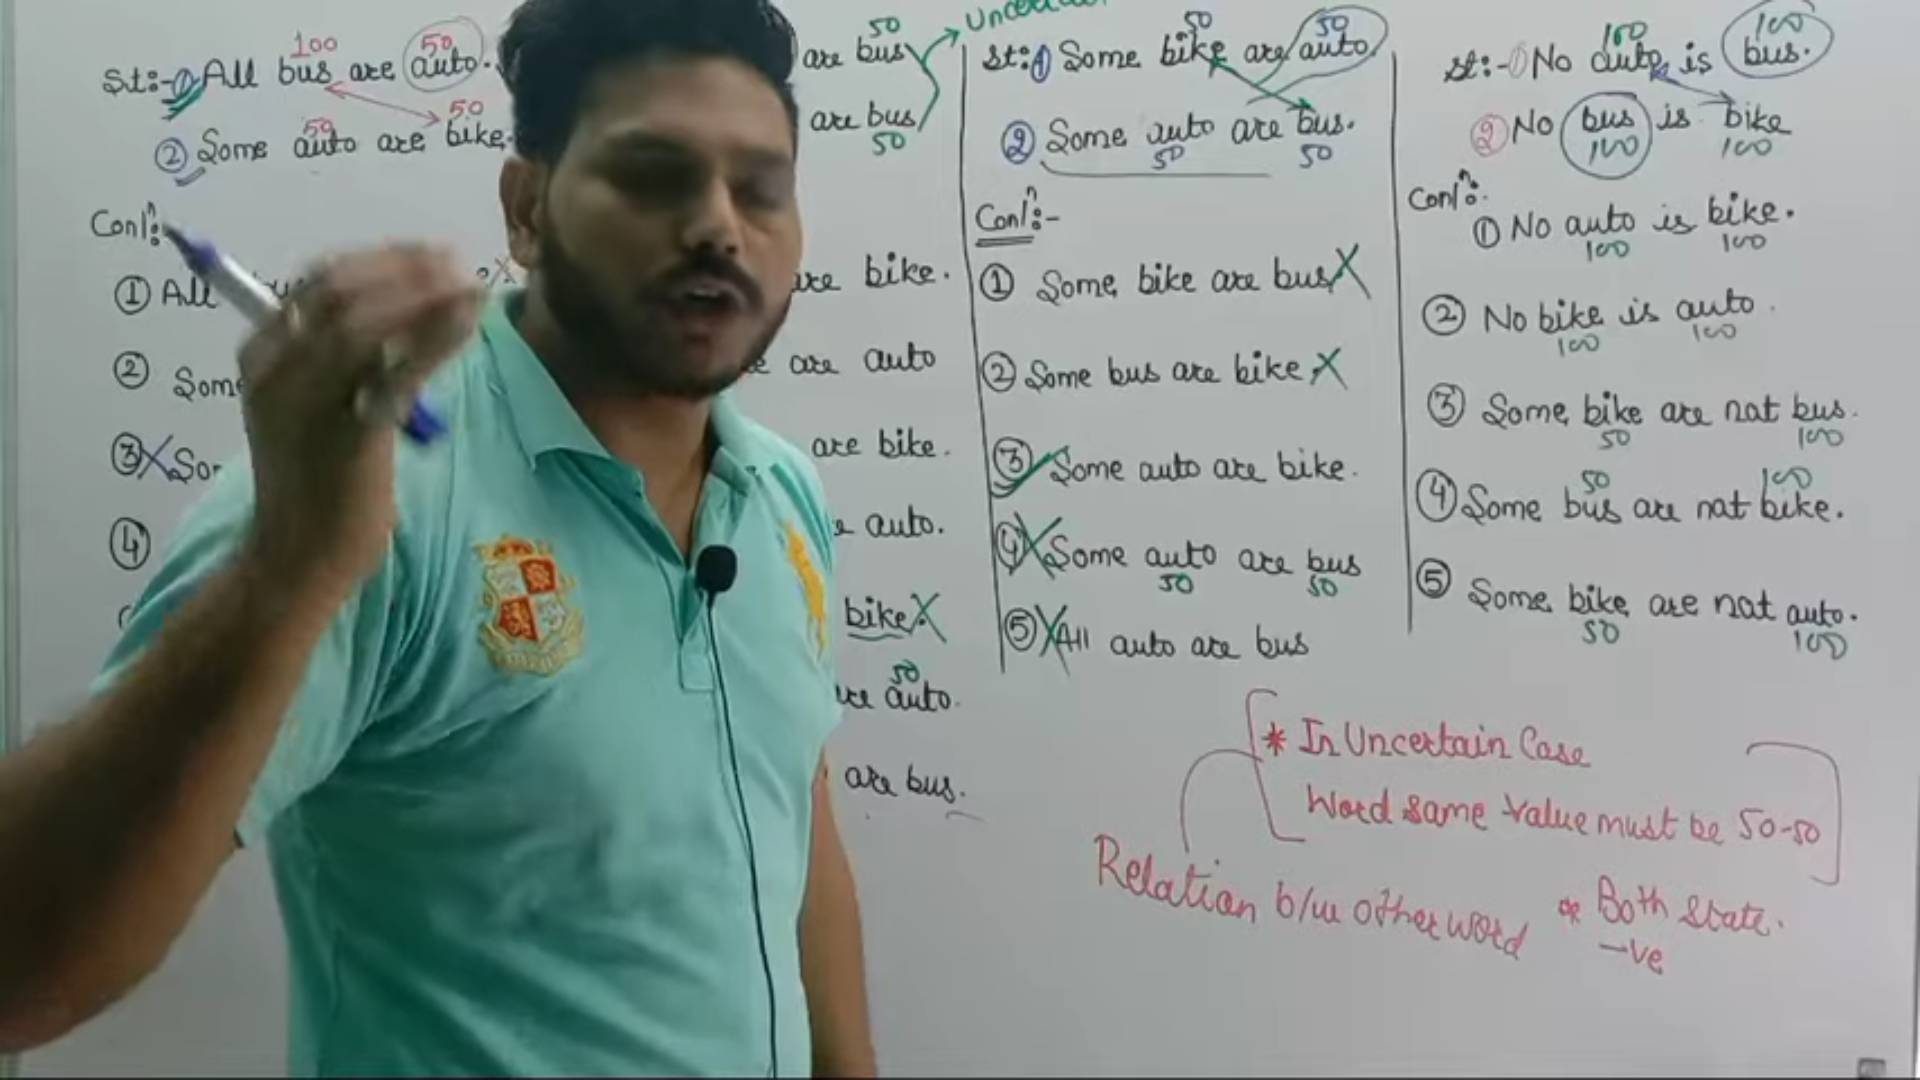 St:-① All bus are auto.
100
50
② Some auto are bike.
50
50
Conlⁿ:-
① All
② Some
③
④
50
are bus
are bus
50
are bike.
are auto
are bike.
auto.
bike.
50
auto.
are bus.
St:① Some bike are auto
50
50
② Some auto are bus.
50
50
Conlⁿ:-
① Some bike are bus
② Some bus are bike
③ Some auto are bike.
④ Some auto are bus
50
50
⑤ All auto are bus
St:-① No auto is bus.
100
100
② No bus is bike
100
100
Conlⁿ:
① No auto is bike.
100
100
② No bike is auto.
100
100
③ Some bike are not bus.
50
100
50
100
④ Some bus are not bike.
⑤ Some bike are not auto.
50
100
* In Uncertain Case
Word same value must be 50-50
Relation b/w other word
* Both state.
-ve